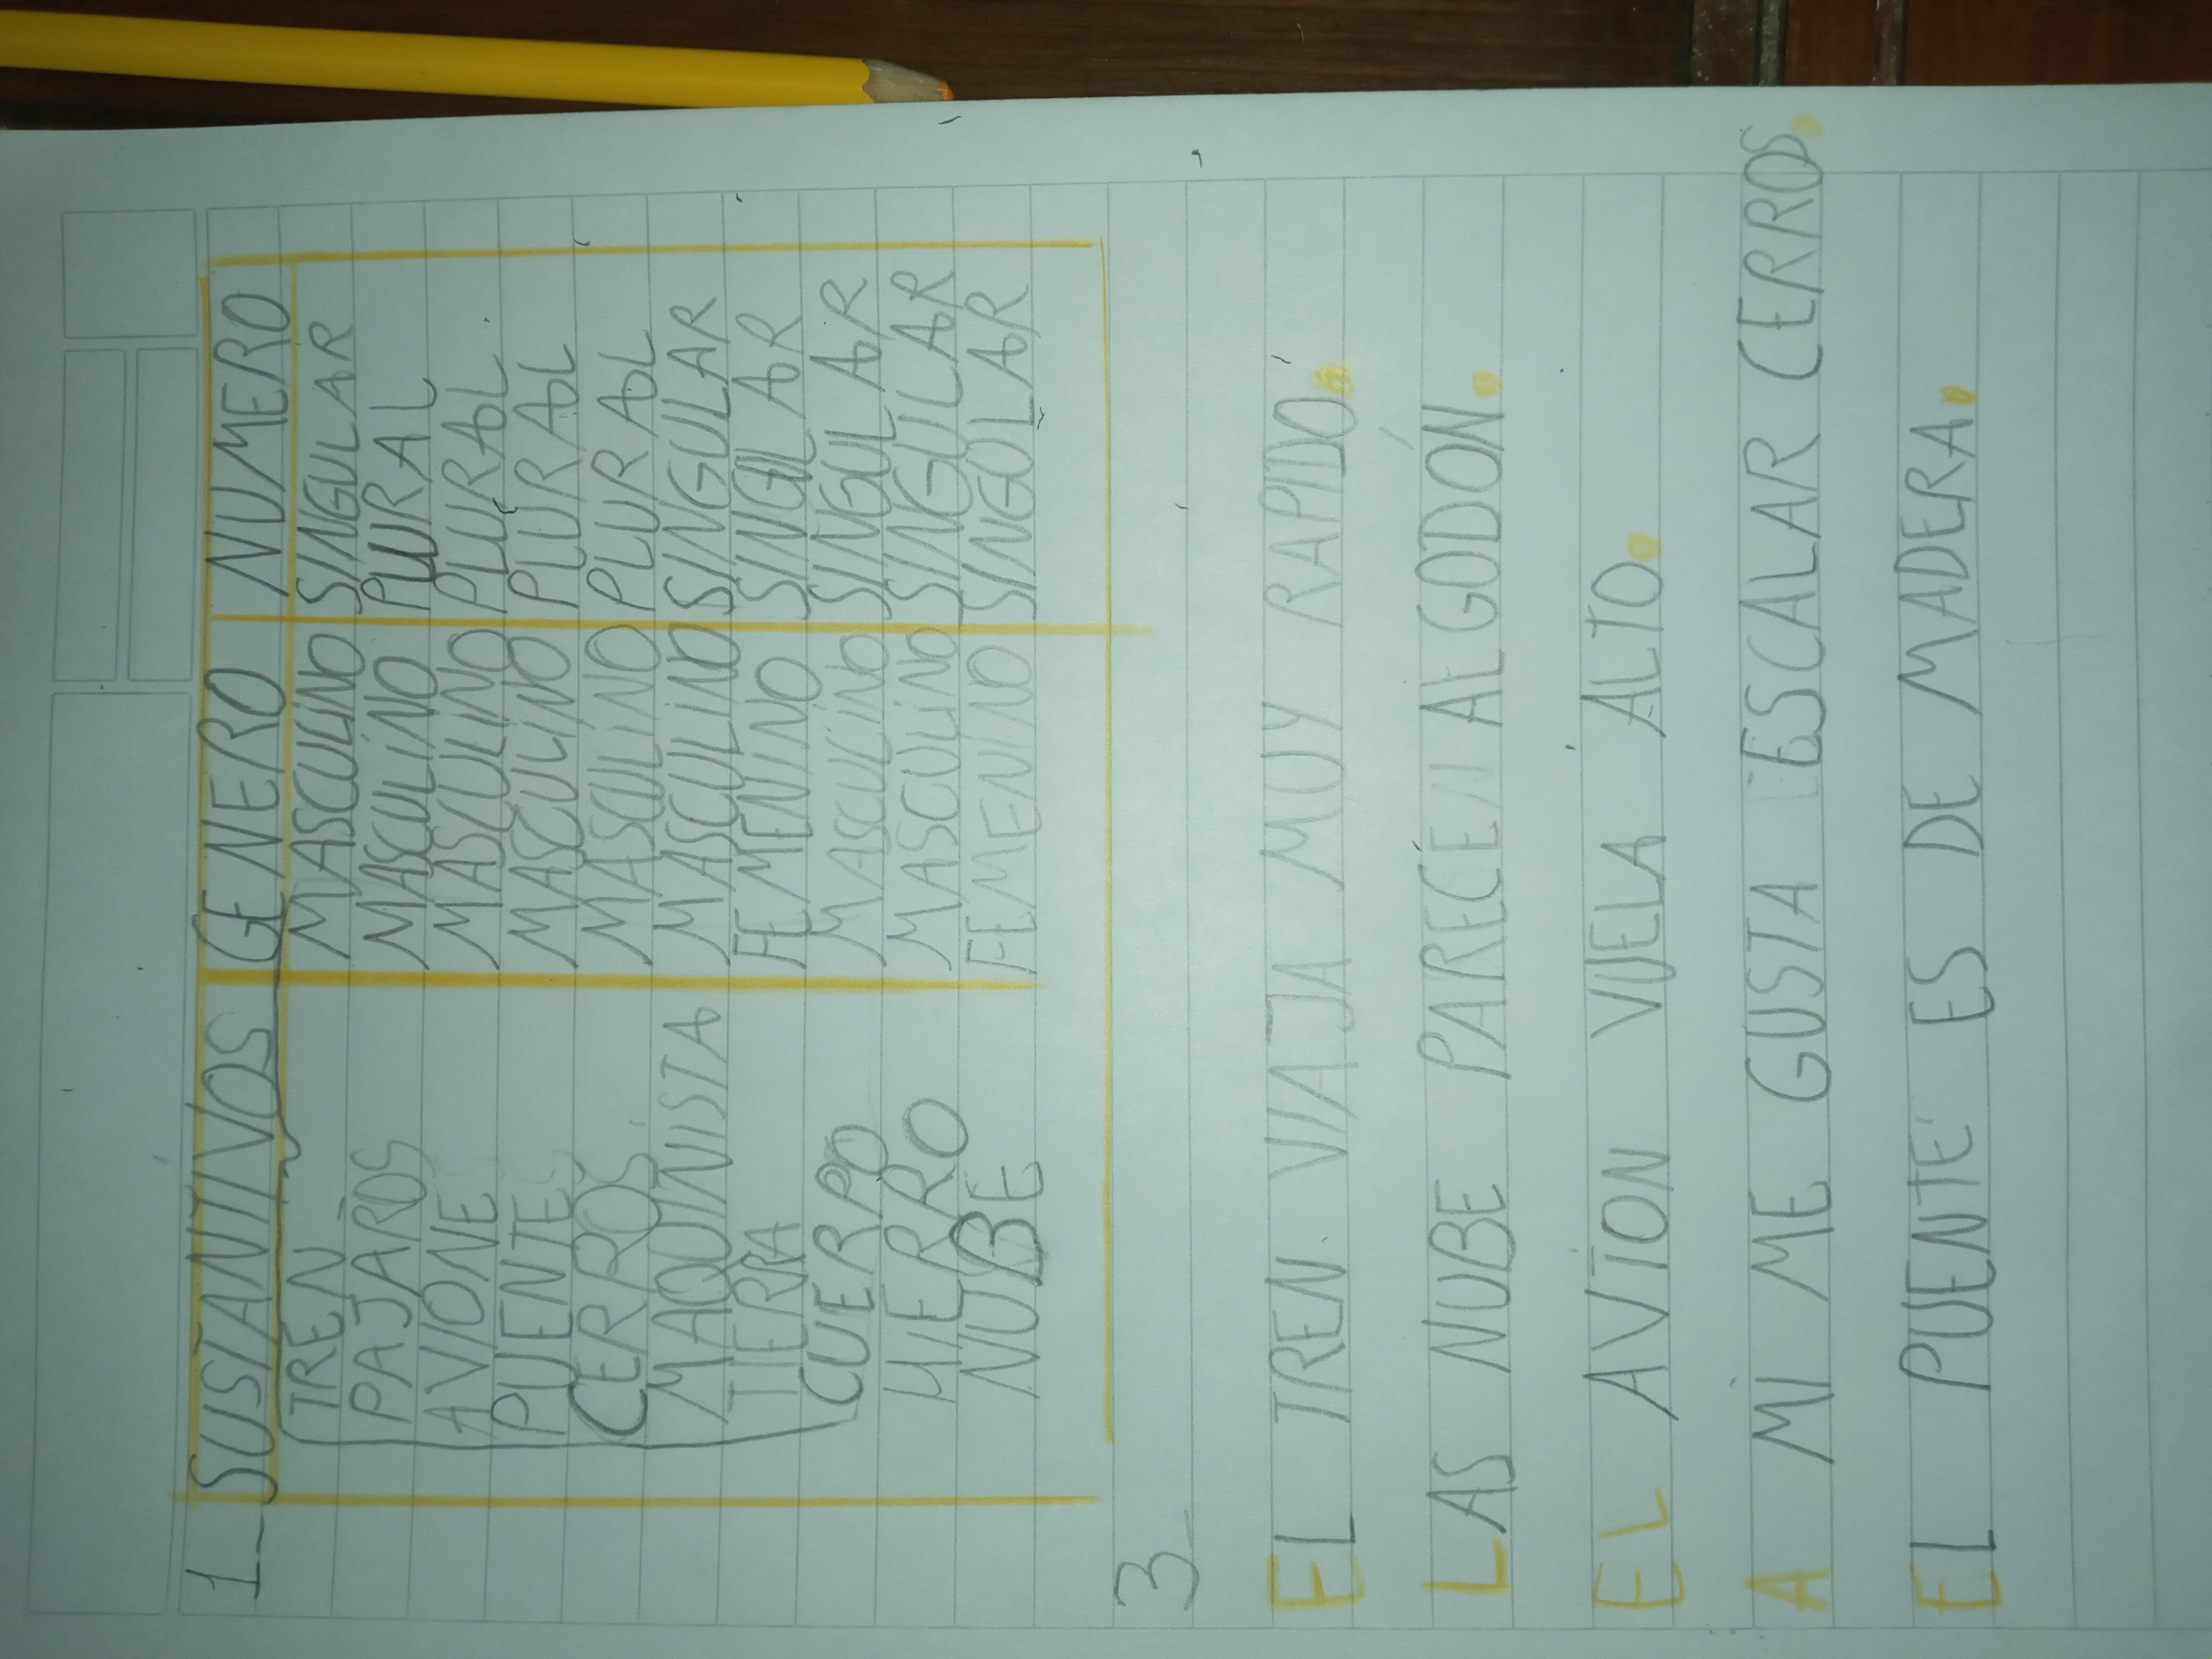 1_ SUSTANTIVOS GENERO NUMERO
TREN MASCULINO SINGULAR
PAJAROS MASCULINO PLURAL
AVIONE MASCULINO PLURAL
PUENTES MASCULINO PLURAL
CERROS MASCULINO PLURAL
MAQUINISTA MASCULINO SINGULAR
TIERRA FEMENINO SINGLAR
CUERPO MASCULINO SINGULAR
HIERRO MASCULINO SINGULAR
NUBE FEMENINO SINGOLAR
3_
EL TREN VIAJA MUY RAPIDO.
LAS NUBE PARECEN ALGODÓN.
EL AVION VUELA ALTO.
A MI ME GUSTA ESCALAR CERROS.
EL PUENTE ES DE MADERA.